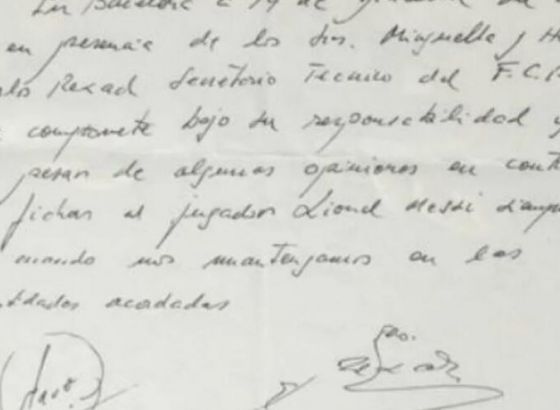 En Barcelona a 14 de
en presencia de los Srs. Minguella y H
Rexad Secretario Tecnico del F.C.
compromete bajo su responsabilidad y
pesar de algunas opiniones en cont
fichar al jugador Lionel Messi
cuando nos mantengamos en las
acordadas